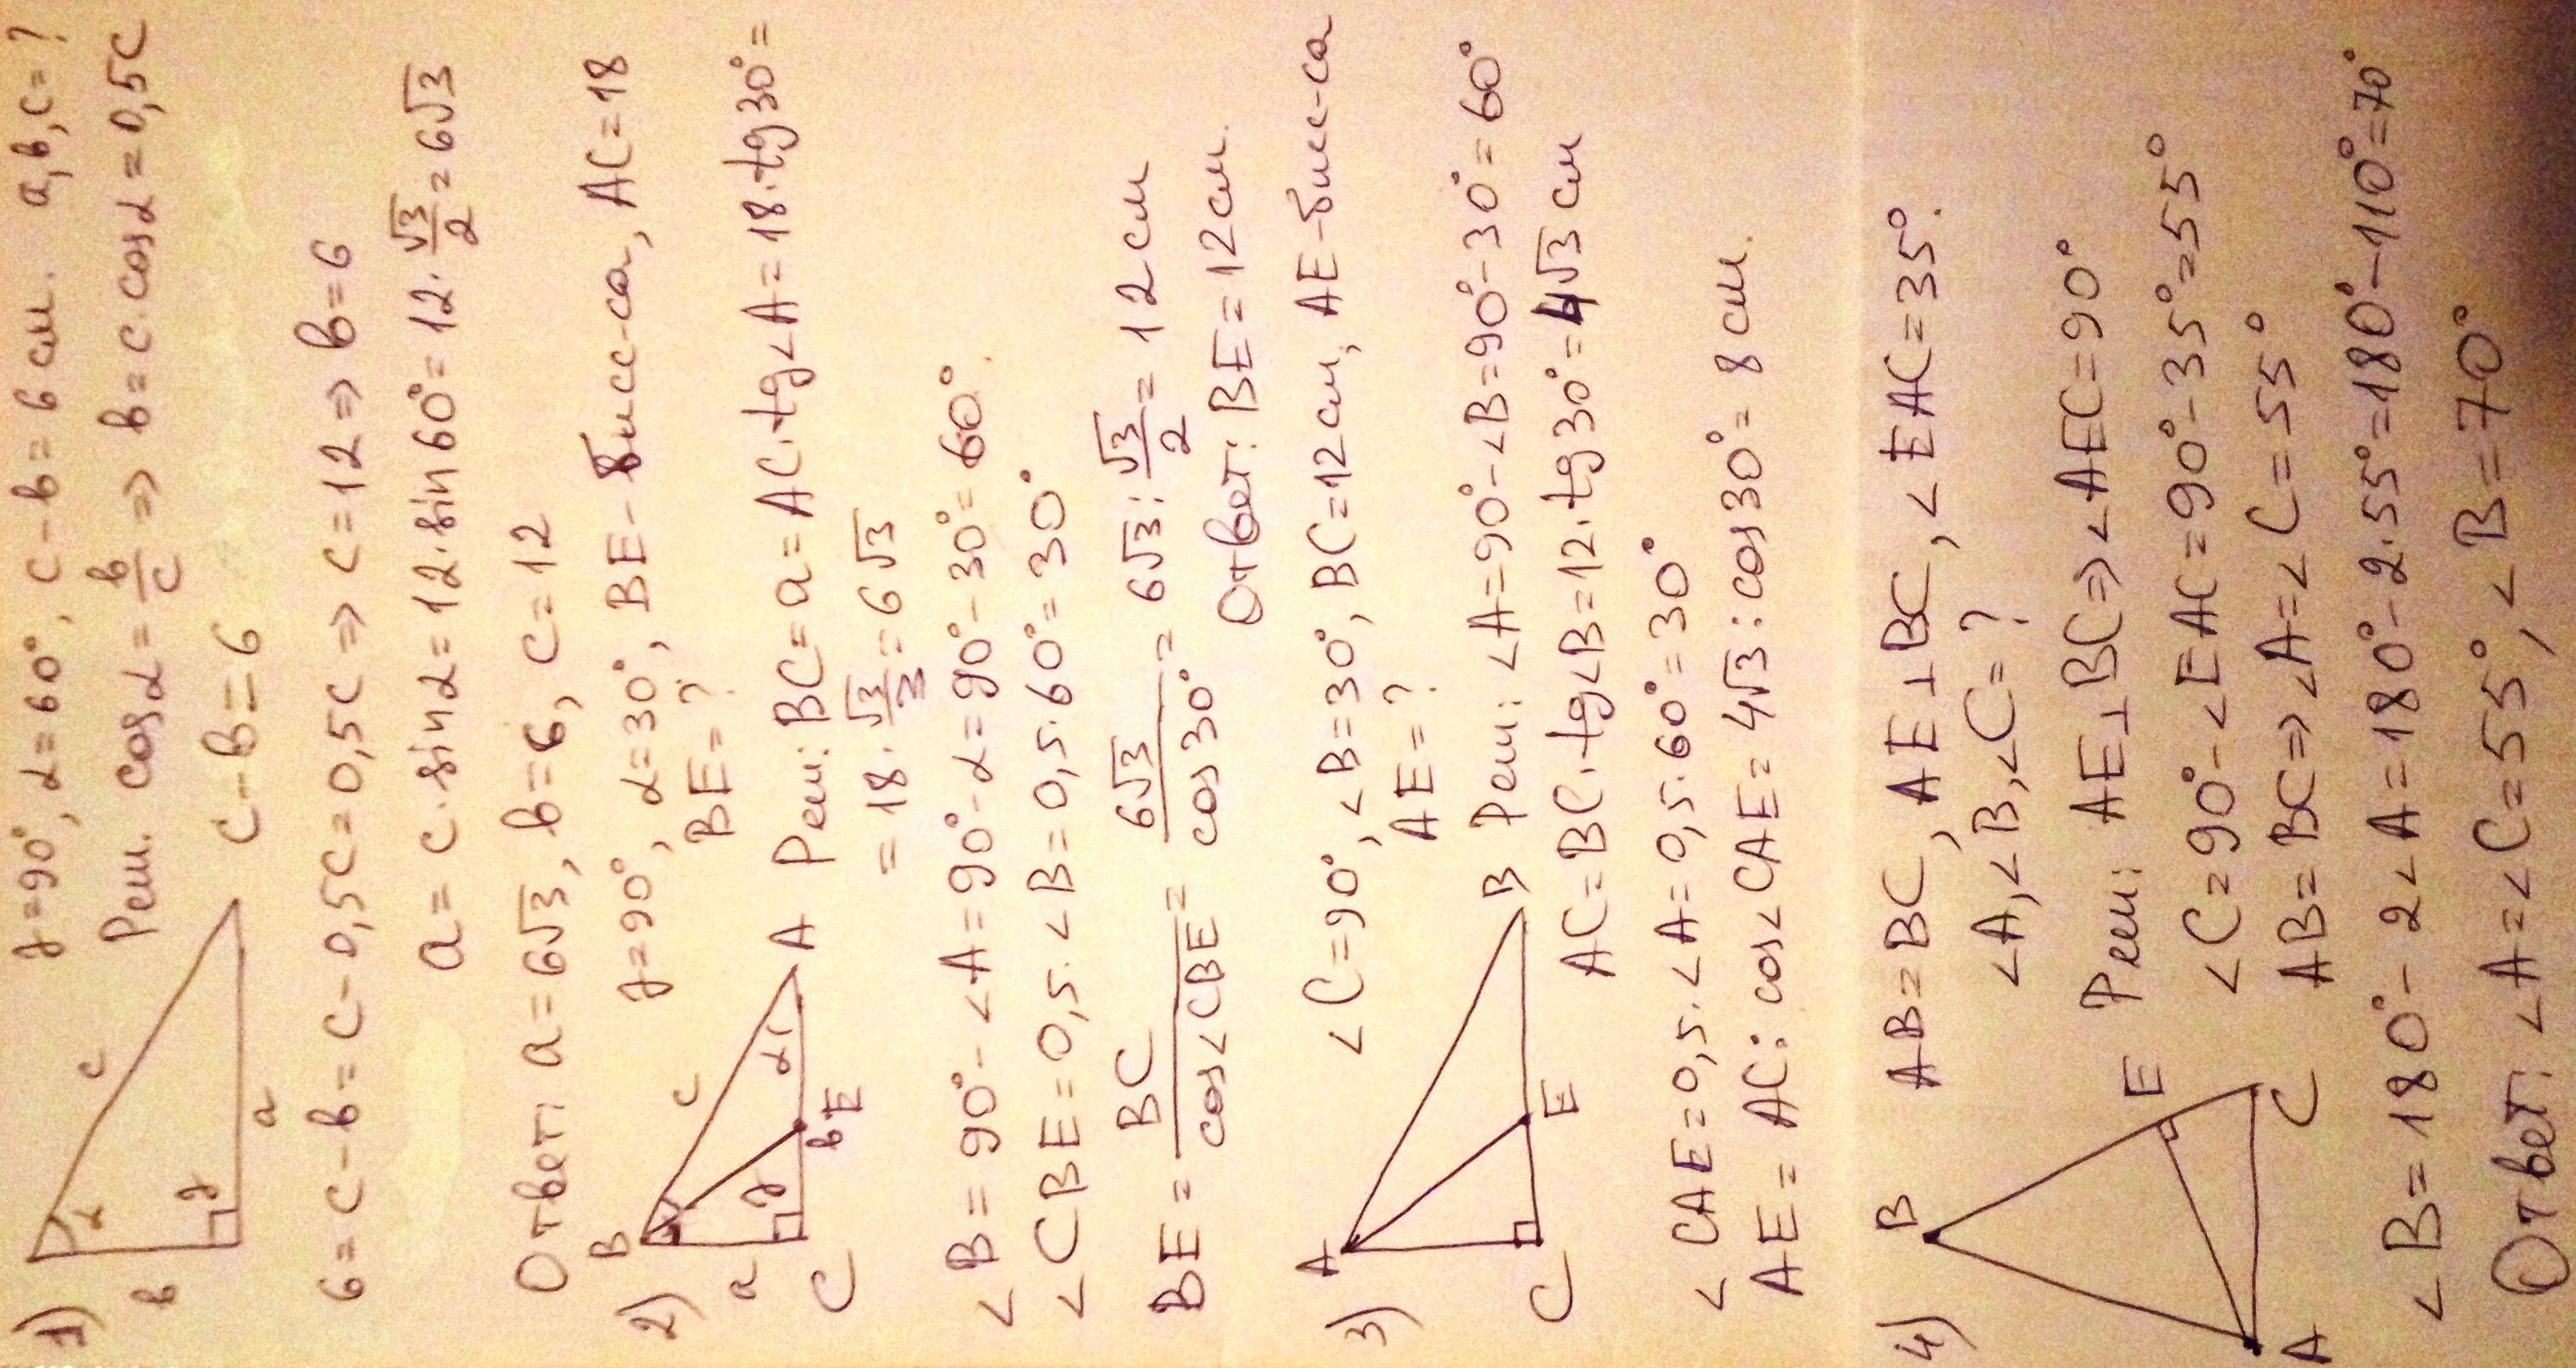 1) γ=90°, α=60°, c-b=6 см. a,b,c=?
α c b γ a
Реш. cosα = b/c => b=c·cosα=0,5c
c-b=6
6=c-b=c-0,5c=0,5c => c=12 => b=6
a=c·sinα=12·sin60°=12·√3/2=6√3
Ответ: a=6√3, b=6, c=12
2) γ=90°, α=30°, BE-бисс-са, AC=18
BE=?
B c a γ α C b E A
Реш: BC=a=AC·tg∠A=18·tg30°=
=18·√3/3=6√3
∠B=90°-∠A=90°-α=90°-30°=60°.
∠CBE=0,5·∠B=0,5·60°=30°
BE = BC/cos∠CBE = 6√3/cos30° = 6√3:√3/2=12 см
Ответ: BE=12 см.
3) ∠C=90°, ∠B=30°, BC=12 см, AE-бисс-са
AE=?
A C E B
Реш: ∠A=90°-∠B=90°-30°=60°
AC=BC·tg∠B=12·tg30°=4√3 см
∠CAE=0,5·∠A=0,5·60°=30°
AE=AC:cos∠CAE=4√3:cos30°=8 см.
4) AB=BC, AE⊥BC, ∠EAC=35°.
∠A,∠B,∠C=?
B E A C
Реш: AE⊥BC=>∠AEC=90°
∠C=90°-∠EAC=90°-35°=55°
AB=BC=>∠A=∠C=55°
∠B=180°-2∠A=180°-2·55°=180°-110°=70°
Ответ: ∠A=∠C=55°, ∠B=70°